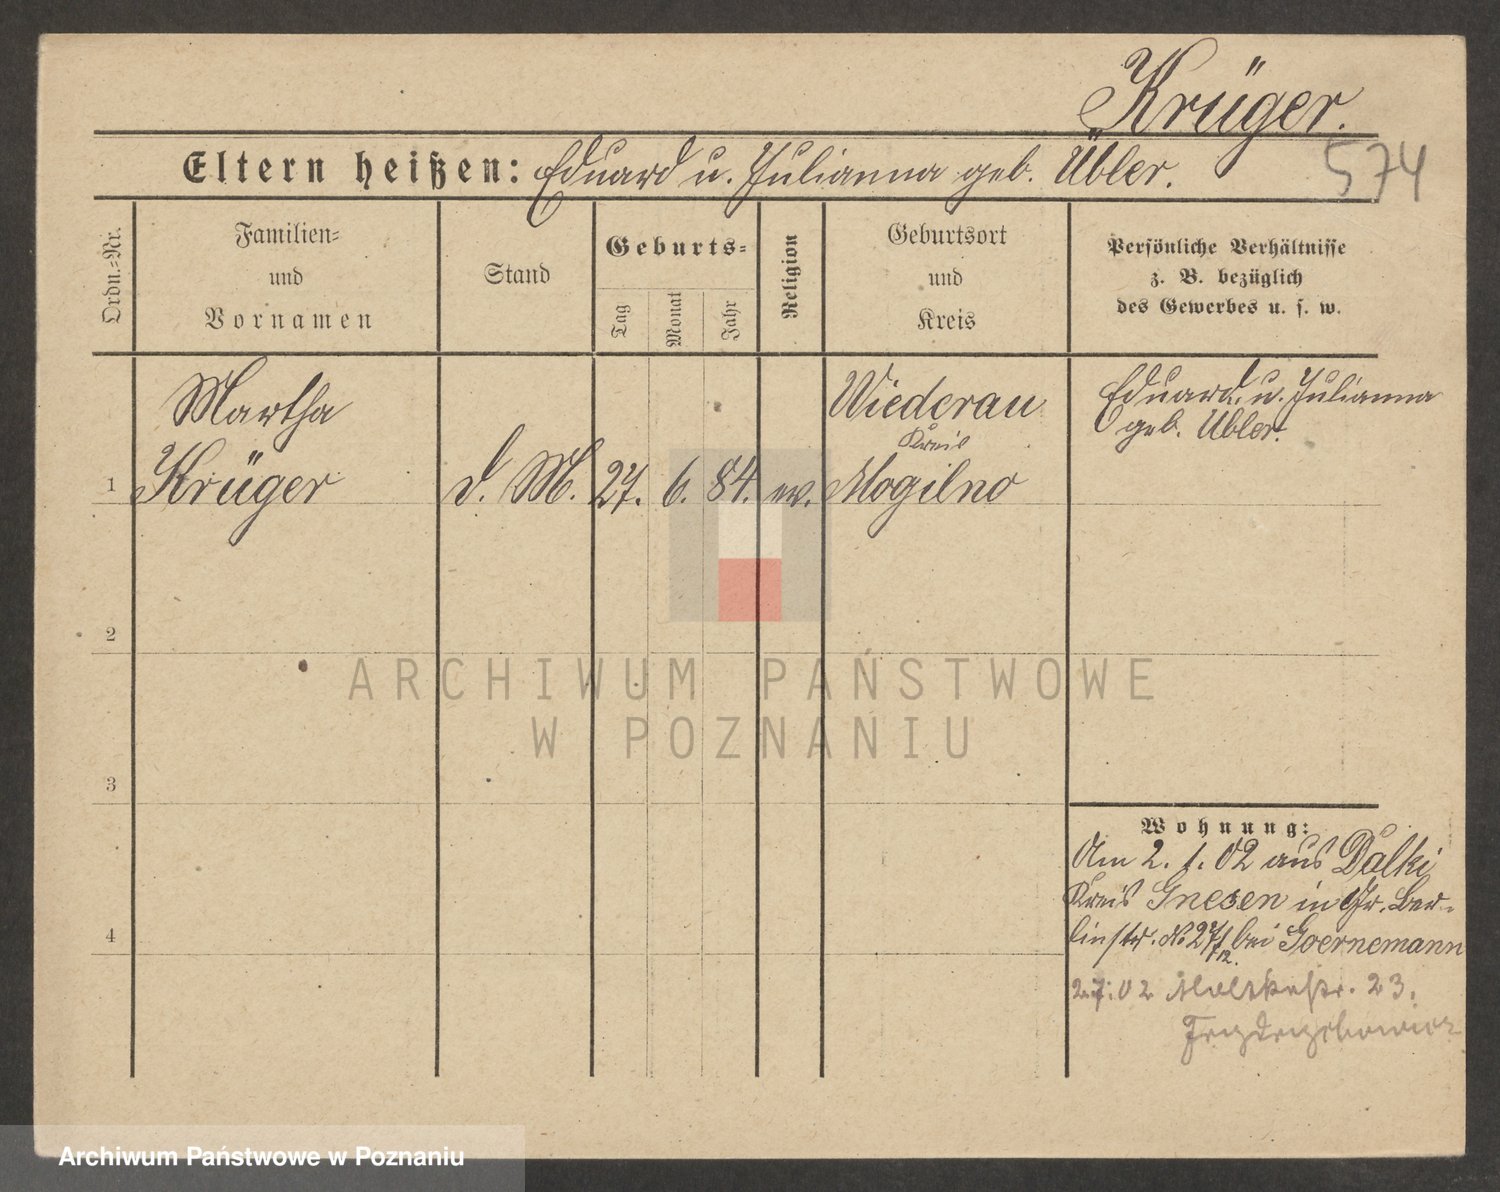 Krüger.
Eltern heißen: Eduard u. Julianna geb. Übler.
574
Ordn.=Nr.
Familien=
und
Vornamen
Stand
Geburts=
Tag
Monat
Jahr
Religion
Geburtsort
und
Kreis
Persönliche Verhältnisse
z. B. bezüglich
des Gewerbes u. s. w.
Martha
1 Krüger
d. M. 27. 6. 84. ev.
Wiederau
Kreis
Mogilno
Eduard u. Julianna
geb. Übler.
2
3
4
Wohnung:
Am 2. 1. 02 aus Dalki
Kreis Gnesen in Gr. Ber-
linstr. No 27 bei Goernemann
2.7.02 Moltkestr. 23.
ARCHIWUM PAŃSTWOWE
W POZNANIU
Archiwum Państwowe w Poznaniu